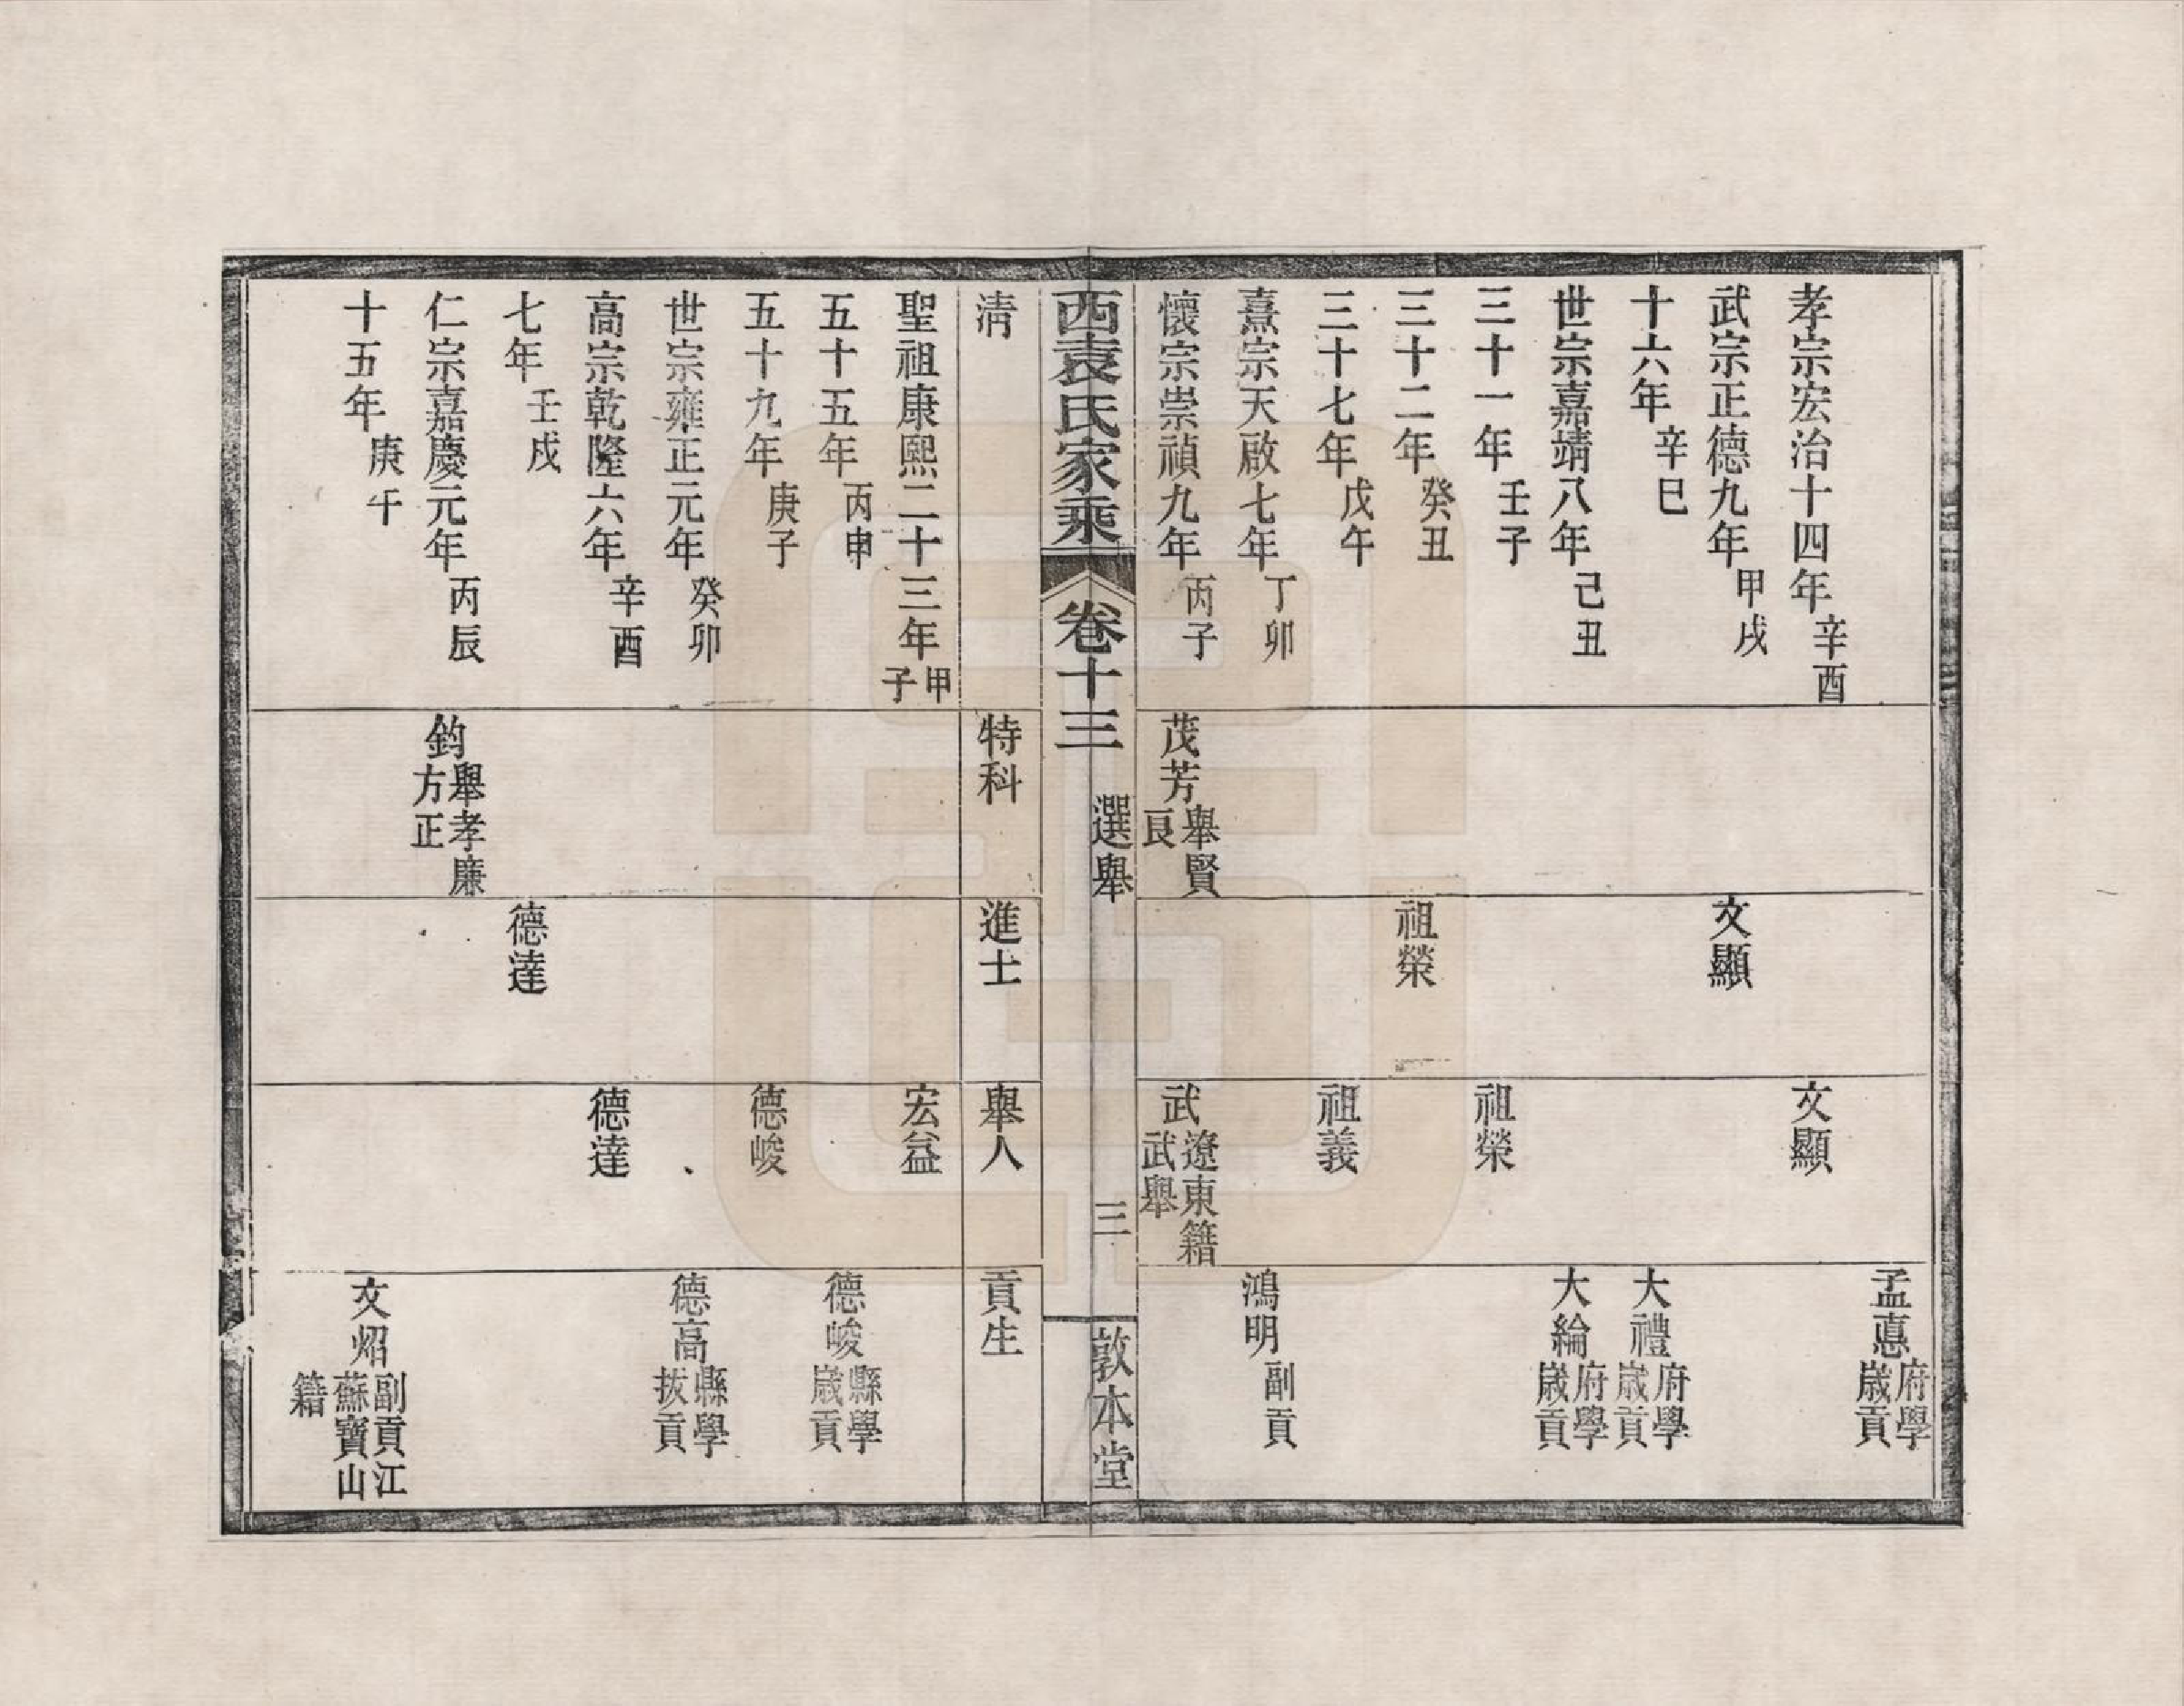 孟惪府學歲貢
孝宗宏治十四年辛酉
文顯
武宗正德九年甲戌
文顯
十六年辛巳
大禮府學歲貢
世宗嘉靖八年己丑
大綸府學歲貢
三十一年壬子
祖榮
三十二年癸丑
祖榮
三十七年戊午
祖義
熹宗天啟七年丁卯
鴻明副貢
懷宗崇禎九年丙子
茂芳舉賢良
武遼東籍武舉
西袁氏家乘
卷十三
選舉
三
敦本堂
淸
特科
進士
舉人
貢生
聖祖康熙二十三年甲子
宏益
五十五年丙申
德峻縣學歲貢
五十九年庚子
德峻
世宗雍正元年癸卯
德高縣學拔貢
高宗乾隆六年辛酉
德達
七年壬戌
德達
仁宗嘉慶元年丙辰
鈞舉孝廉方正
十五年庚午
文炤副貢江蘇寶山籍